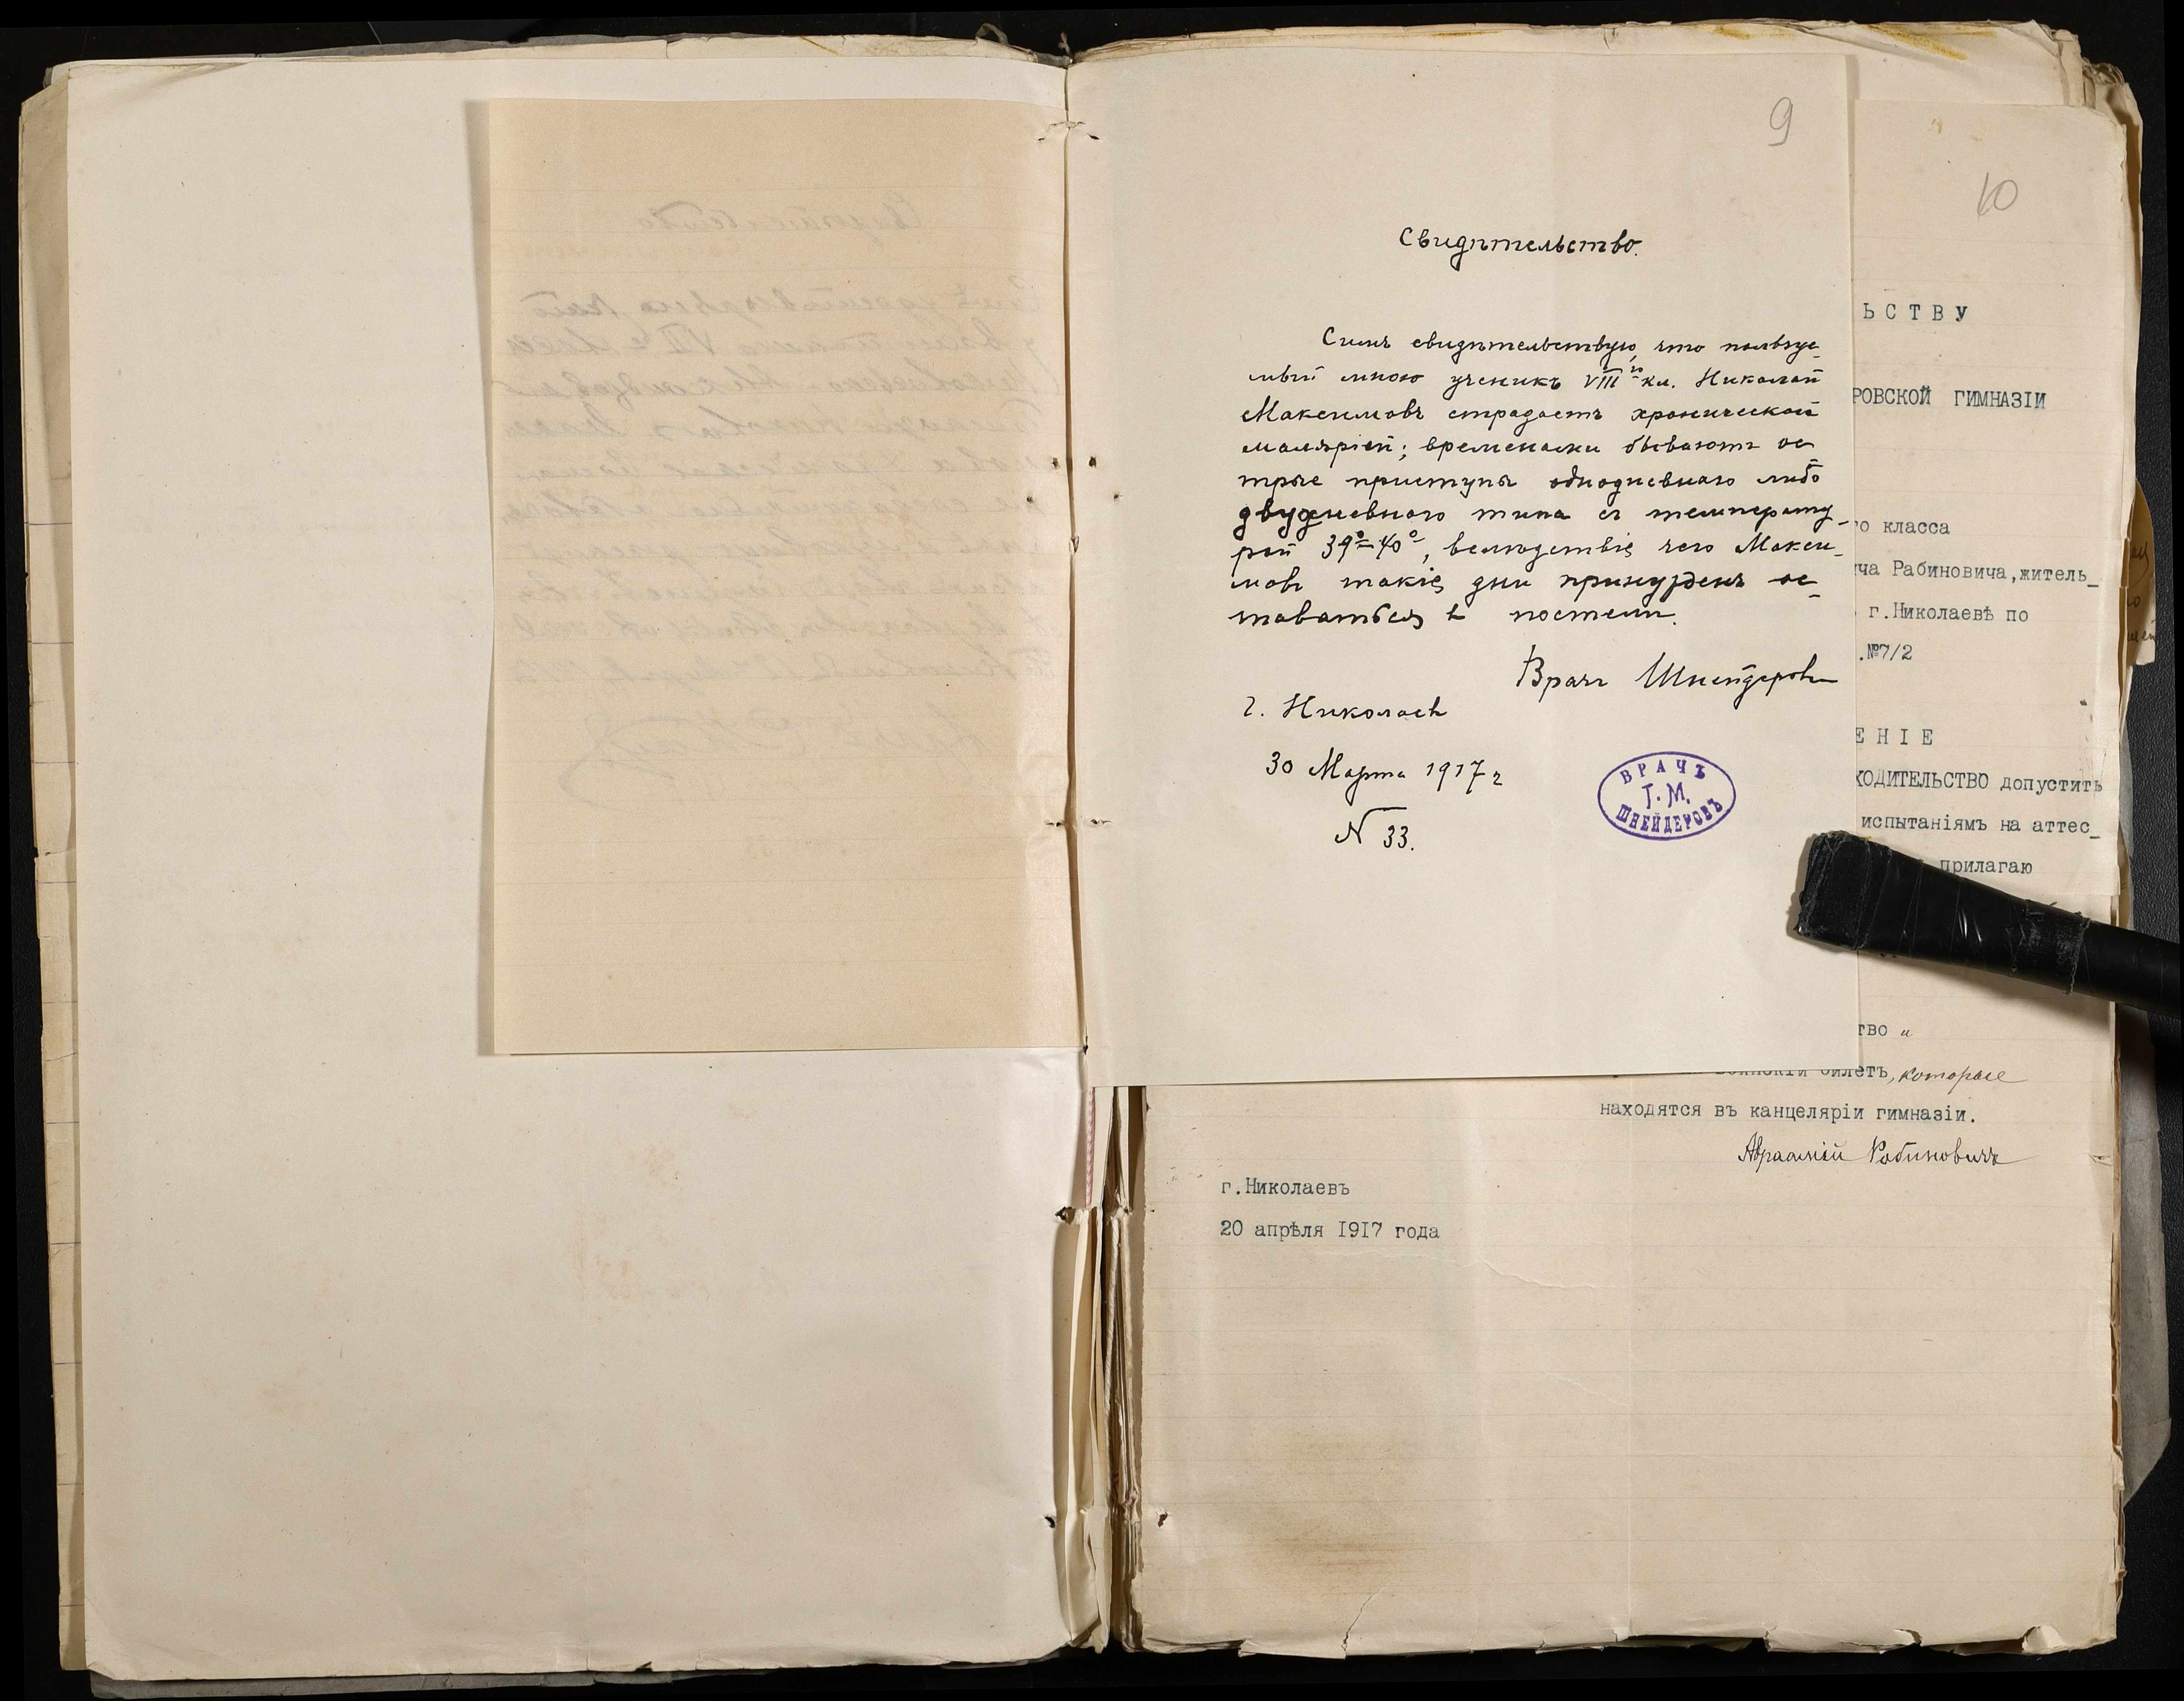 9
Свидѣтельство.
Симъ свидѣтельствую, что пользуе-
мый мною ученикъ VIII го кл. Николай
Максимовъ страдаетъ хронической
маляріей; временами бываютъ ос-
трые приступы однодневнаго либо
двудневнаго типа съ температу-
рой 39°-40°, вслѣдствіе чего Макси-
мовъ такіе дни принужденъ ос-
таваться въ постели.
Врачъ Шнейдеровъ
г. Николаевъ
30 Марта 1917 г
N 33.
ВРАЧЪ
Г. М.
ШНЕЙДЕРОВЪ
10
ЬСТВУ
РОВСКОЙ ГИМНАЗІИ
го класса
ича Рабиновича,житель_
г.Николаевѣ по
.№7/2
ЕНІЕ
ХОДИТЕЛЬСТВО допустить
испытаніямъ на аттес_
прилагаю
тво и
билетъ, которые
находятся въ канцеляріи гимназіи.
Авраамій Рабиновичъ
г.Николаевъ
20 апрѣля 1917 года